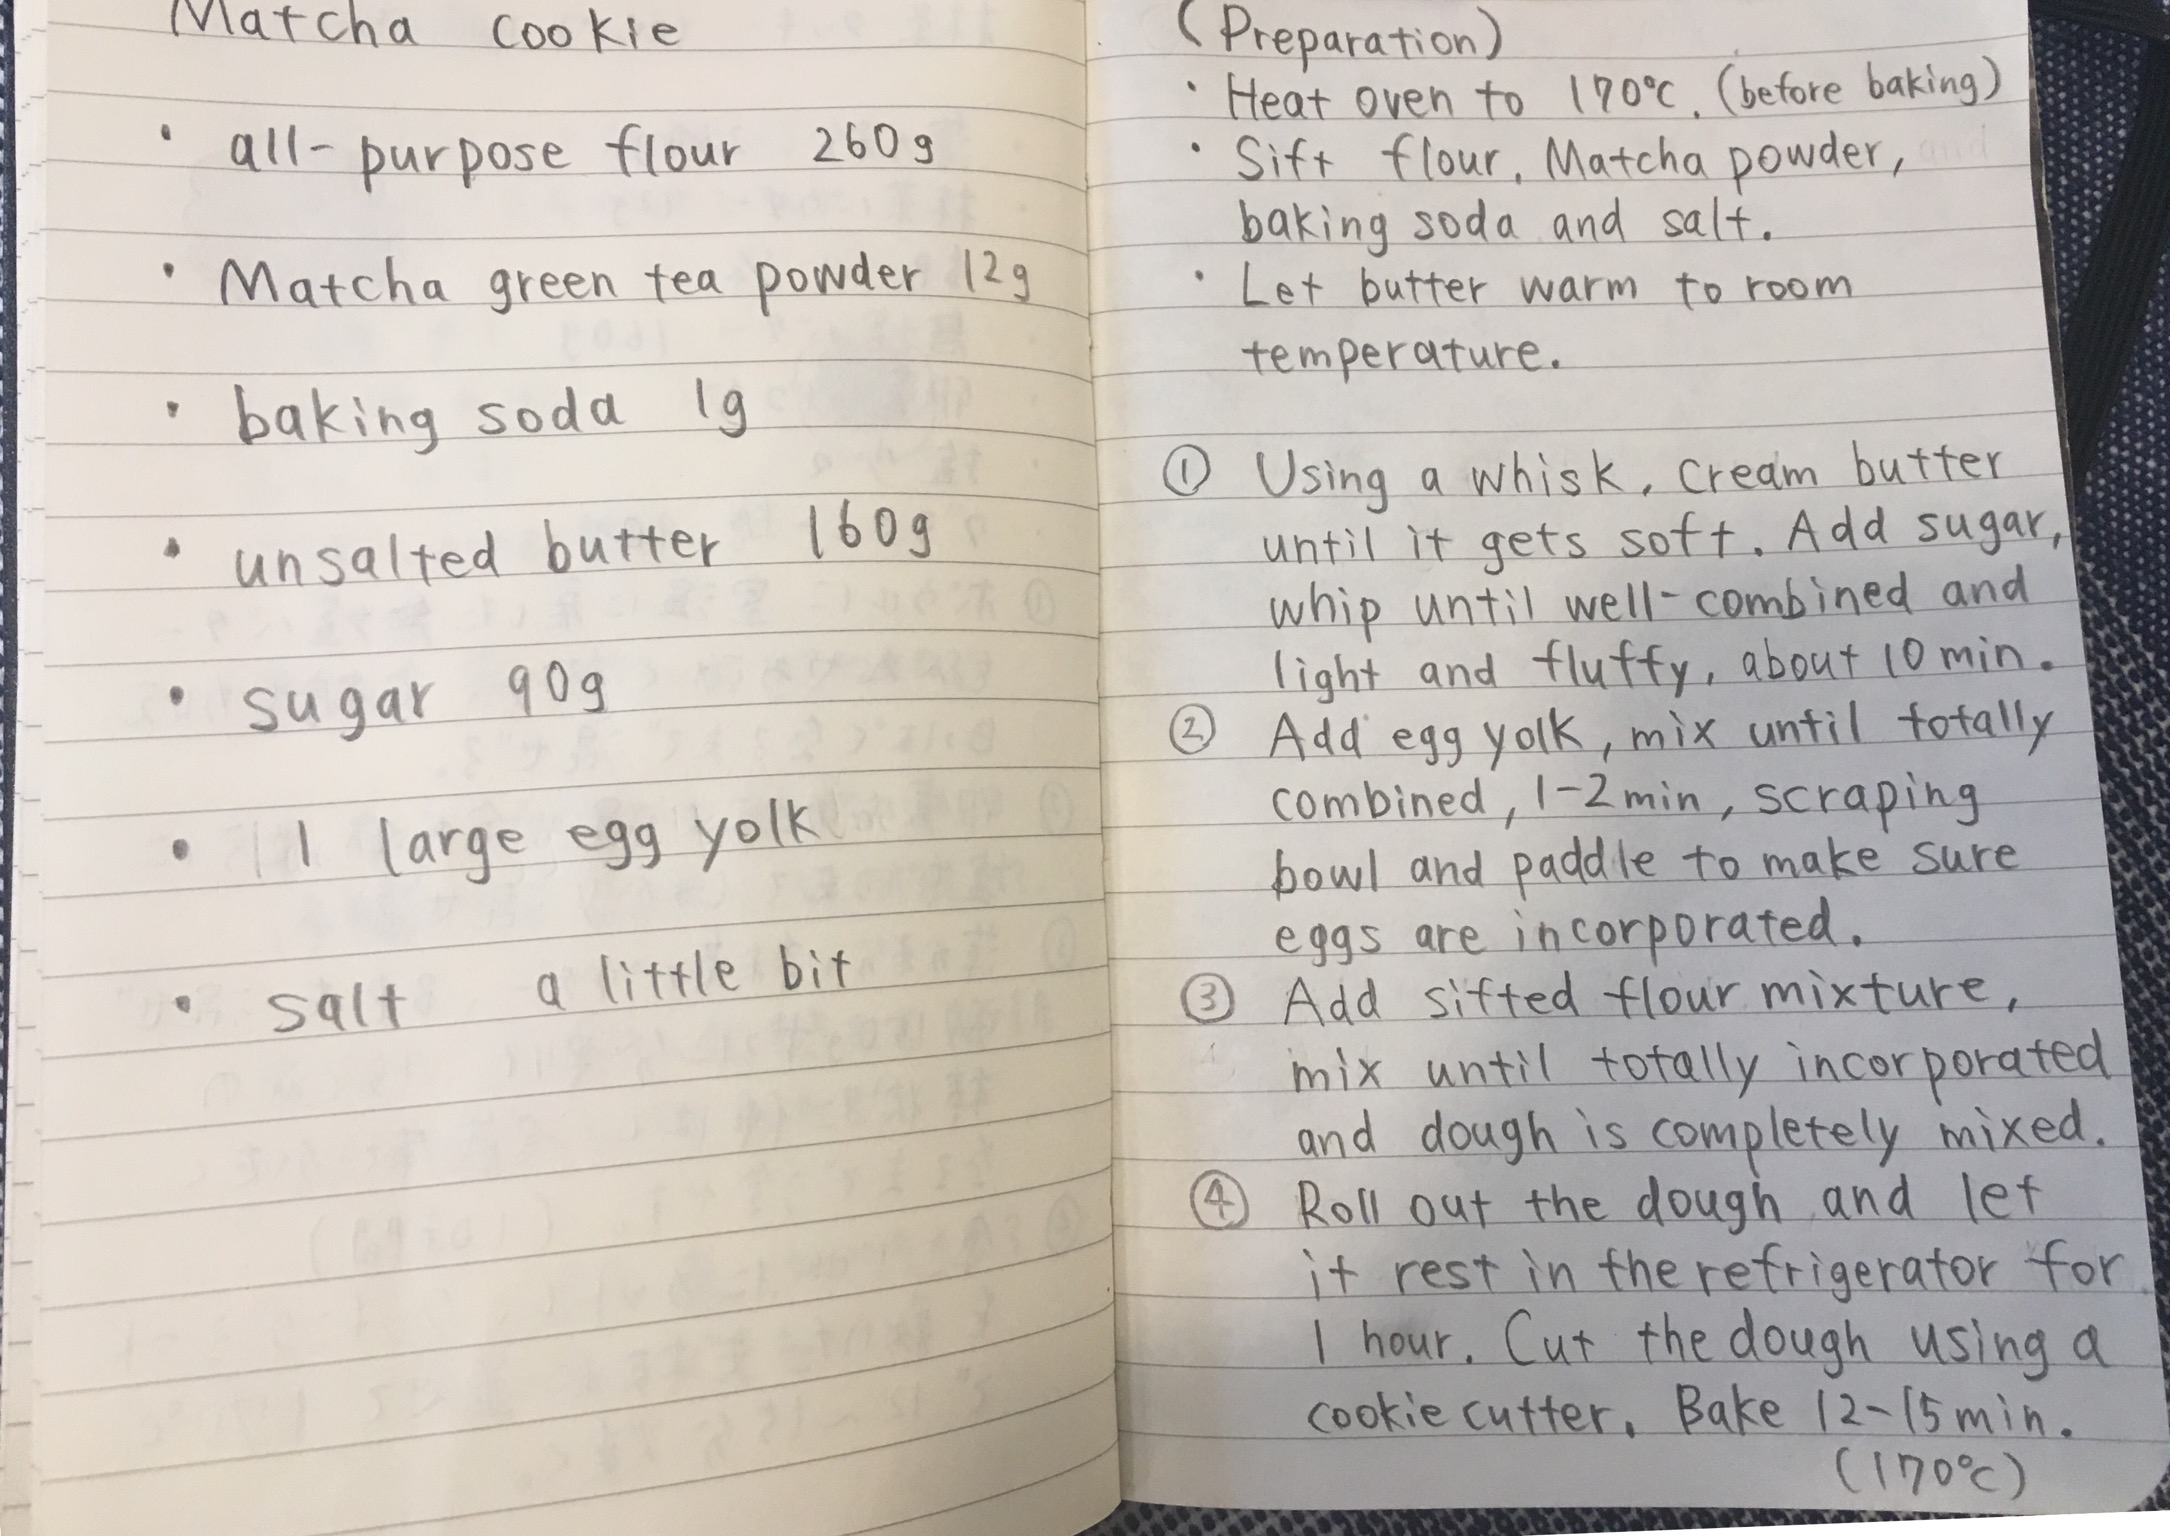 Matcha cookie
・ all-purpose flour 260g
・ Matcha green tea powder 12g
・ baking soda 1g
・ unsalted butter 160g
・ sugar 90g
・ 1 large egg yolk
・ salt a little bit
(Preparation)
・ Heat oven to 170℃. (before baking)
・ Sift flour, Matcha powder,
baking soda and salt.
・ Let butter warm to room
temperature.
① Using a whisk, cream butter
until it gets soft. Add sugar,
whip until well-combined and
light and fluffy, about 10 min.
② Add egg yolk, mix until totally
combined, 1-2 min, scraping
bowl and paddle to make sure
eggs are incorporated.
③ Add sifted flour mixture,
mix until totally incorporated
and dough is completely mixed.
④ Roll out the dough and let
it rest in the refrigerator for
1 hour. Cut the dough using a
cookie cutter. Bake 12-15 min.
(170℃)